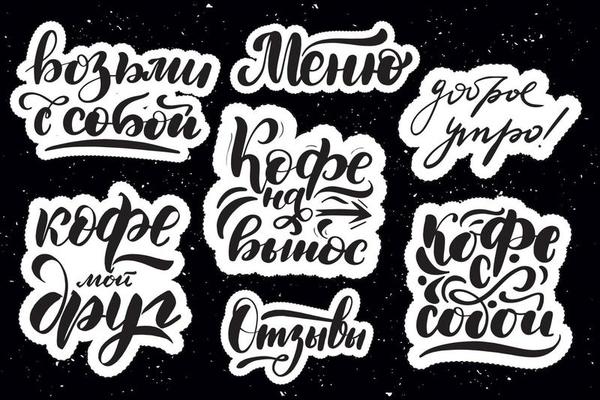 возьми
с собой
Меню
доброе
утро!
Кофе
на
вынос
кофе
мой
друг
Отзывы
кофе
с
собой